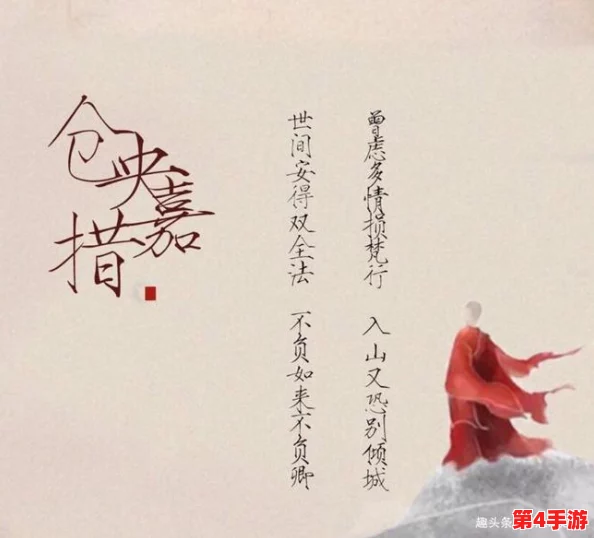 仓央嘉措
曾虑多情损梵行 入山又恐别倾城
世间安得双全法 不负如来不负卿
趣头条
第4手游